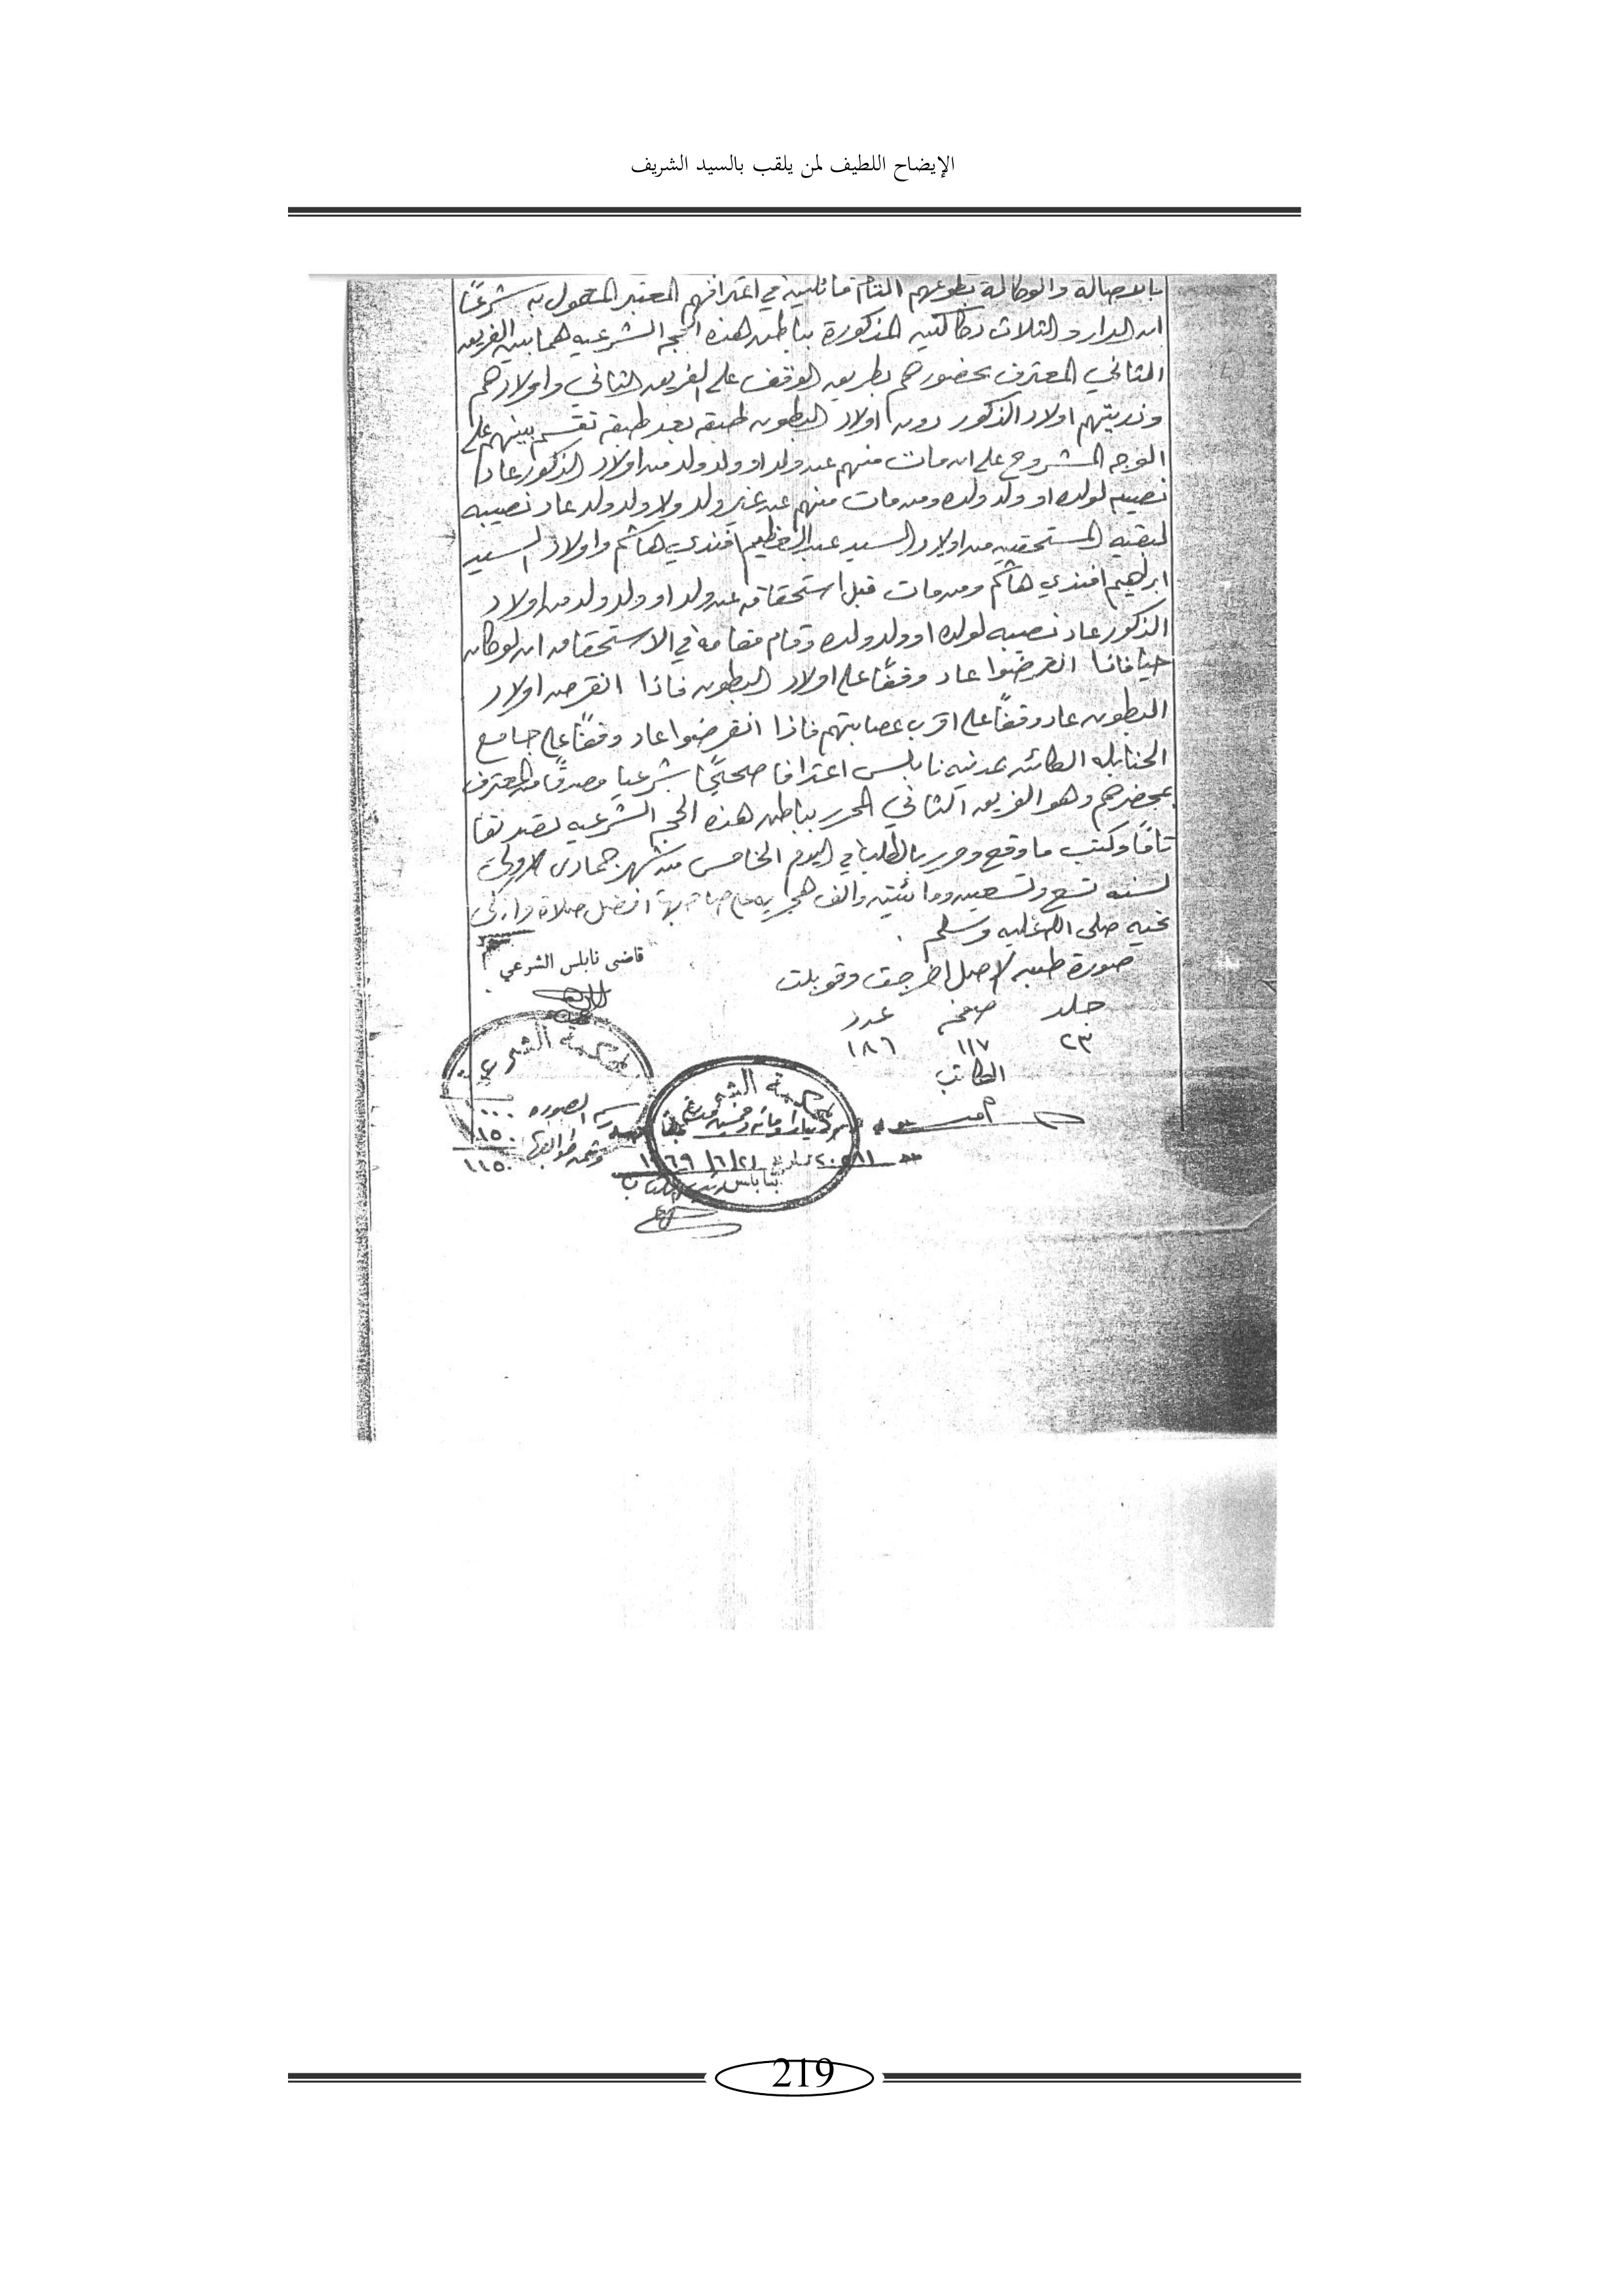 الإيضاح اللطيف لمن يلقب بالسيد الشريف
بالاصالة والوكالة بطوعهم التام قائلين في اعترافهم المعتبر المعمول به شرعًا
ان الدار والثلاث دكاكين المذكورة بباطن هذه الحجه الشرعيه هما بين الفريق
الثاني المعترف بحضورهم بطريق الوقف على الفريق الثاني واولادهم
وذريتهم اولاد الذكور دون اولاد البطون طبقه بعد طبقه تقسم بينهم على
الوجه المشروح على ان مات منهم عن ولد او ولد ولد من اولاد الذكور عاد
نصيبه لولده او ولد ولده ومن مات منهم عن غير ولد ولا ولد ولد عاد نصيبه
لبقيه المستحقين من اولاد السيد عبد العظيم افندي هاشم واولاد السيد
ابراهيم افندي هاشم ومن مات قبل استحقاقه عن ولد او ولد ولد من اولاد
الذكور عاد نصيبه لولده او ولد ولده وقام مقامه في الاستحقاق ان لو كان
حيًا فاذا انقرضوا عاد وقفًا على اولاد البطون فاذا انقرض اولاد
البطون عاد وقفًا على اقرب عصابتهم فاذا انقرضوا عاد وقفًا على جامع
الحنابله الكائن بمدينة نابلس اعترافا صحيحًا شرعيا مصدقًا من المعترف
بمحضرهم وهو الفريق الثاني المحرر بباطن هذه الحجه الشرعيه تصديقا
تامًا وكتب ما وقع وحرر بالطلب في اليوم الخامس من شهر جمادى الاولى
لسنه تسع وتسعين ومائتين والف هجريه على صاحبها افضل صلاة وازكى
تحيه صلى الله عليه وسلم
صورة طبق لاصل اخرجت وقوبلت
قاضي نابلس الشرعي
جلد صفحه عدد
٢٣ ١١٧ ١٨٦
الكاتب
محكمة الشرعية
محكمة الشر
رسم الصوره ١٠٠٠
١٥٠
١١٥٠
١٩٦٩/٦/٢١
219